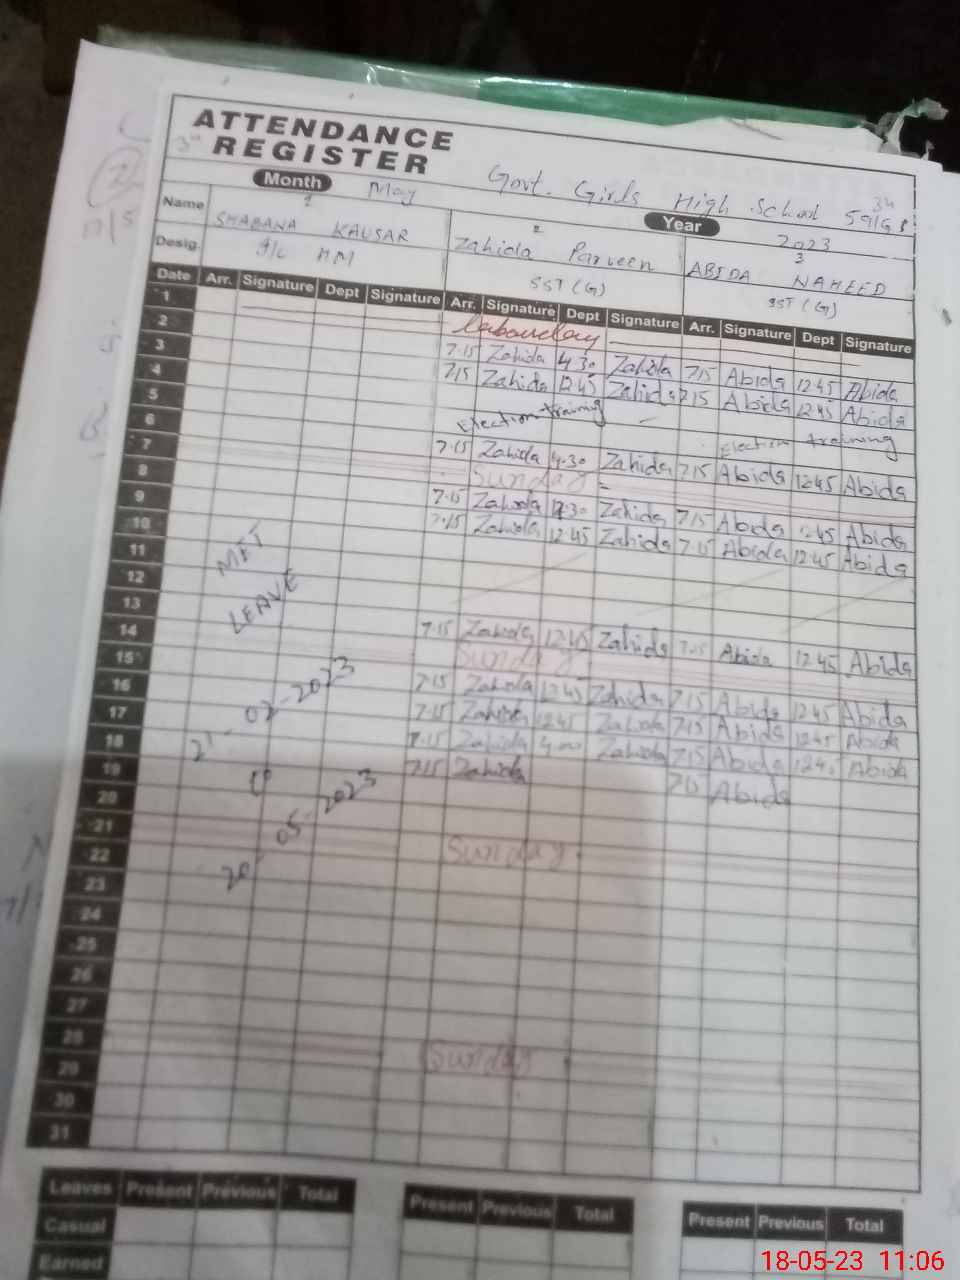 ATTENDANCE
REGISTER
Month May
Govt. Girls High School 59/G
Year 2023
Name SHABANA KAUSAR
Zahida Parveen
ABIDA NAHEED
Desig.
SST (G)
SST (G)
Date Arr. Signature Dept Signature Arr. Signature Dept Signature Arr. Signature Dept Signature
1 Labourday
2 7.15 Zahida 4.30 Zahida 7.15 Abida 12.45 Abida
3 7.15 Zahida 12.45 Zahida 7.15 Abida 12.45 Abida
4 Election training Election training
5
6 7.15 Zahida 4.30 Zahida 7.15 Abida 12.45 Abida
7 Sunday
8 7.15 Zahida 12.30 Zahida 7.15 Abida 12.45 Abida
9 7.15 Zahida 12.45 Zahida 7.15 Abida 12.45 Abida
10
11
12
13 7.15 Zahida 12.45 Zahida 7.15 Abida 12.45 Abida
14 Sunday
15 7.15 Zahida 12.45 Zahida 7.15 Abida 12.45 Abida
16 7.15 Zahida 12.45 Zahida 7.15 Abida 12.45 Abida
17 7.15 Zahida 4.00 Zahida 7.15 Abida 12.45 Abida
18 7.15 Zahida 7.15 Abida
19
20
21 Sunday
22
23
24
25
26
27
28 Sunday
29
30
31
LEAVE
21-02-2023
20-05-2023
Leaves Present Previous Total Present Previous Total Present Previous Total
Casual
Earned
18-05-23 11:06